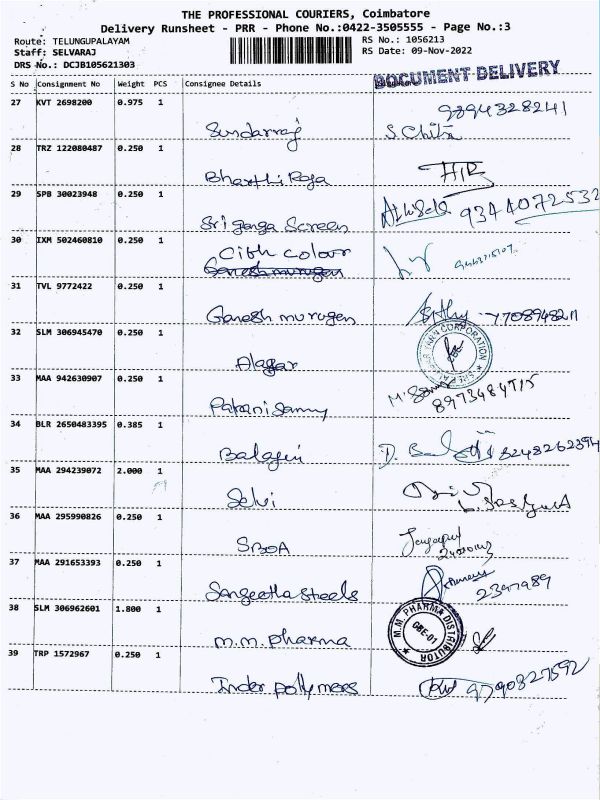 THE PROFESSIONAL COURIERS, Coimbatore
Delivery Runsheet - PRR - Phone No.:0422-3505555 - Page No.:3
Route: TELUNGUPALAYAM
Staff: SELVARAJ
DRS No.: DCJB105621303
RS No.: 1056213
RS Date: 09-Nov-2022
DOCUMENT DELIVERY
S No Consignment No Weight PCS Consignee Details
27 KVT 2698200 0.975 1
9894328241
Sundarraj S. Chitra
28 TRZ 122080487 0.250 1
Bharthi Raja
29 SPB 30023948 0.250 1
9344072532
Sri Ganga Screen
30 IXM 502460810 0.250 1
Cibh colour
Ganesh murugen
31 TVL 9772422 0.250 1
Ganesh murugen 7708948211
32 SLM 306945470 0.250 1
YARN CORPORATION
Alagar
33 MAA 942630907 0.250 1
Palanisamy 8973484715
34 BLR 2650483395 0.385 1
Balagiri 8248262394
35 MAA 294239072 2.000 1
Selvi
36 MAA 295990826 0.250 1
SBOA
37 MAA 291653393 0.250 1
Sangeetha Steels 2347989
38 SLM 306962601 1.800 1
M.M. PHARMA DISTRIBUTOR
CBE-01
M.M. Pharma
39 TRP 1572967 0.250 1
Inder Polymers 9790827592